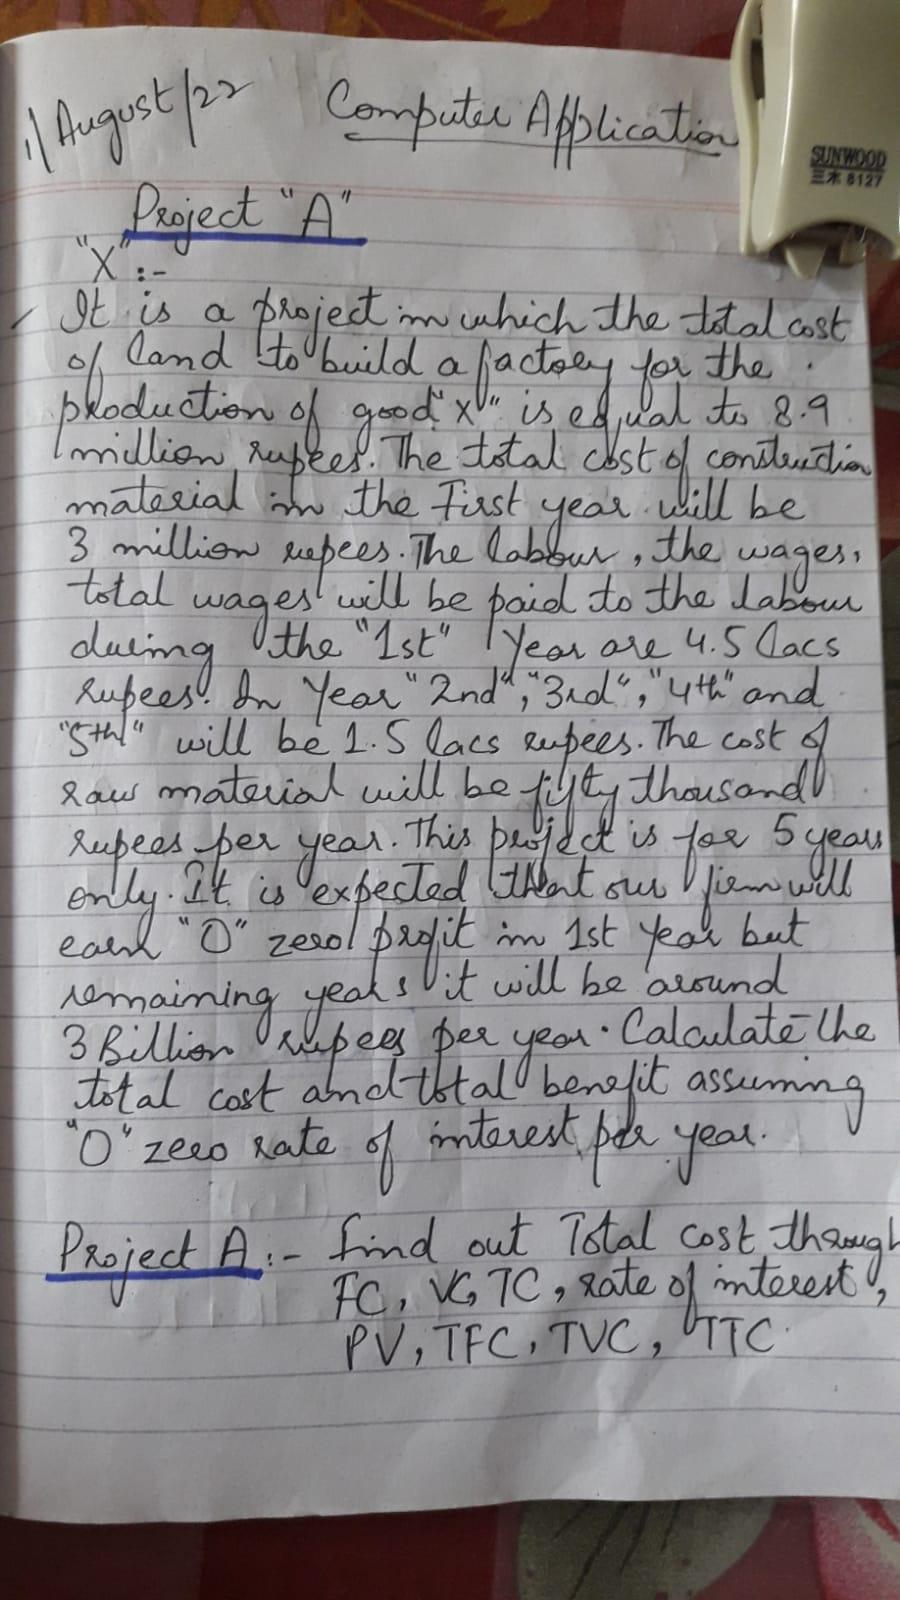 1/August/22
Computer Application
SUNWOOD
三木 8127
Project "A"
"X" :-
It is a project in which the total cost
of land to build a factory for the
production of good "X" is equal to 8.9
million rupees. The total cost of construction
material in the First year will be
3 million rupees. The labour, the wages,
total wages will be paid to the labour
during the "1st" Year are 4.5 lacs
rupees. In Year "2nd", "3rd", "4th" and
"5th" will be 1.5 lacs rupees. The cost of
raw material will be fifty thousand
rupees per year. This project is for 5 years
only. It is expected that our firm will
earn "0" zero profit in 1st Year but
remaining years it will be around
3 Billion rupees per year. Calculate the
total cost and total benefit assuming
"0" zero rate of interest per year.
Project A :- find out Total cost through
FC, VC, TC, rate of interest,
PV, TFC, TVC, TTC.